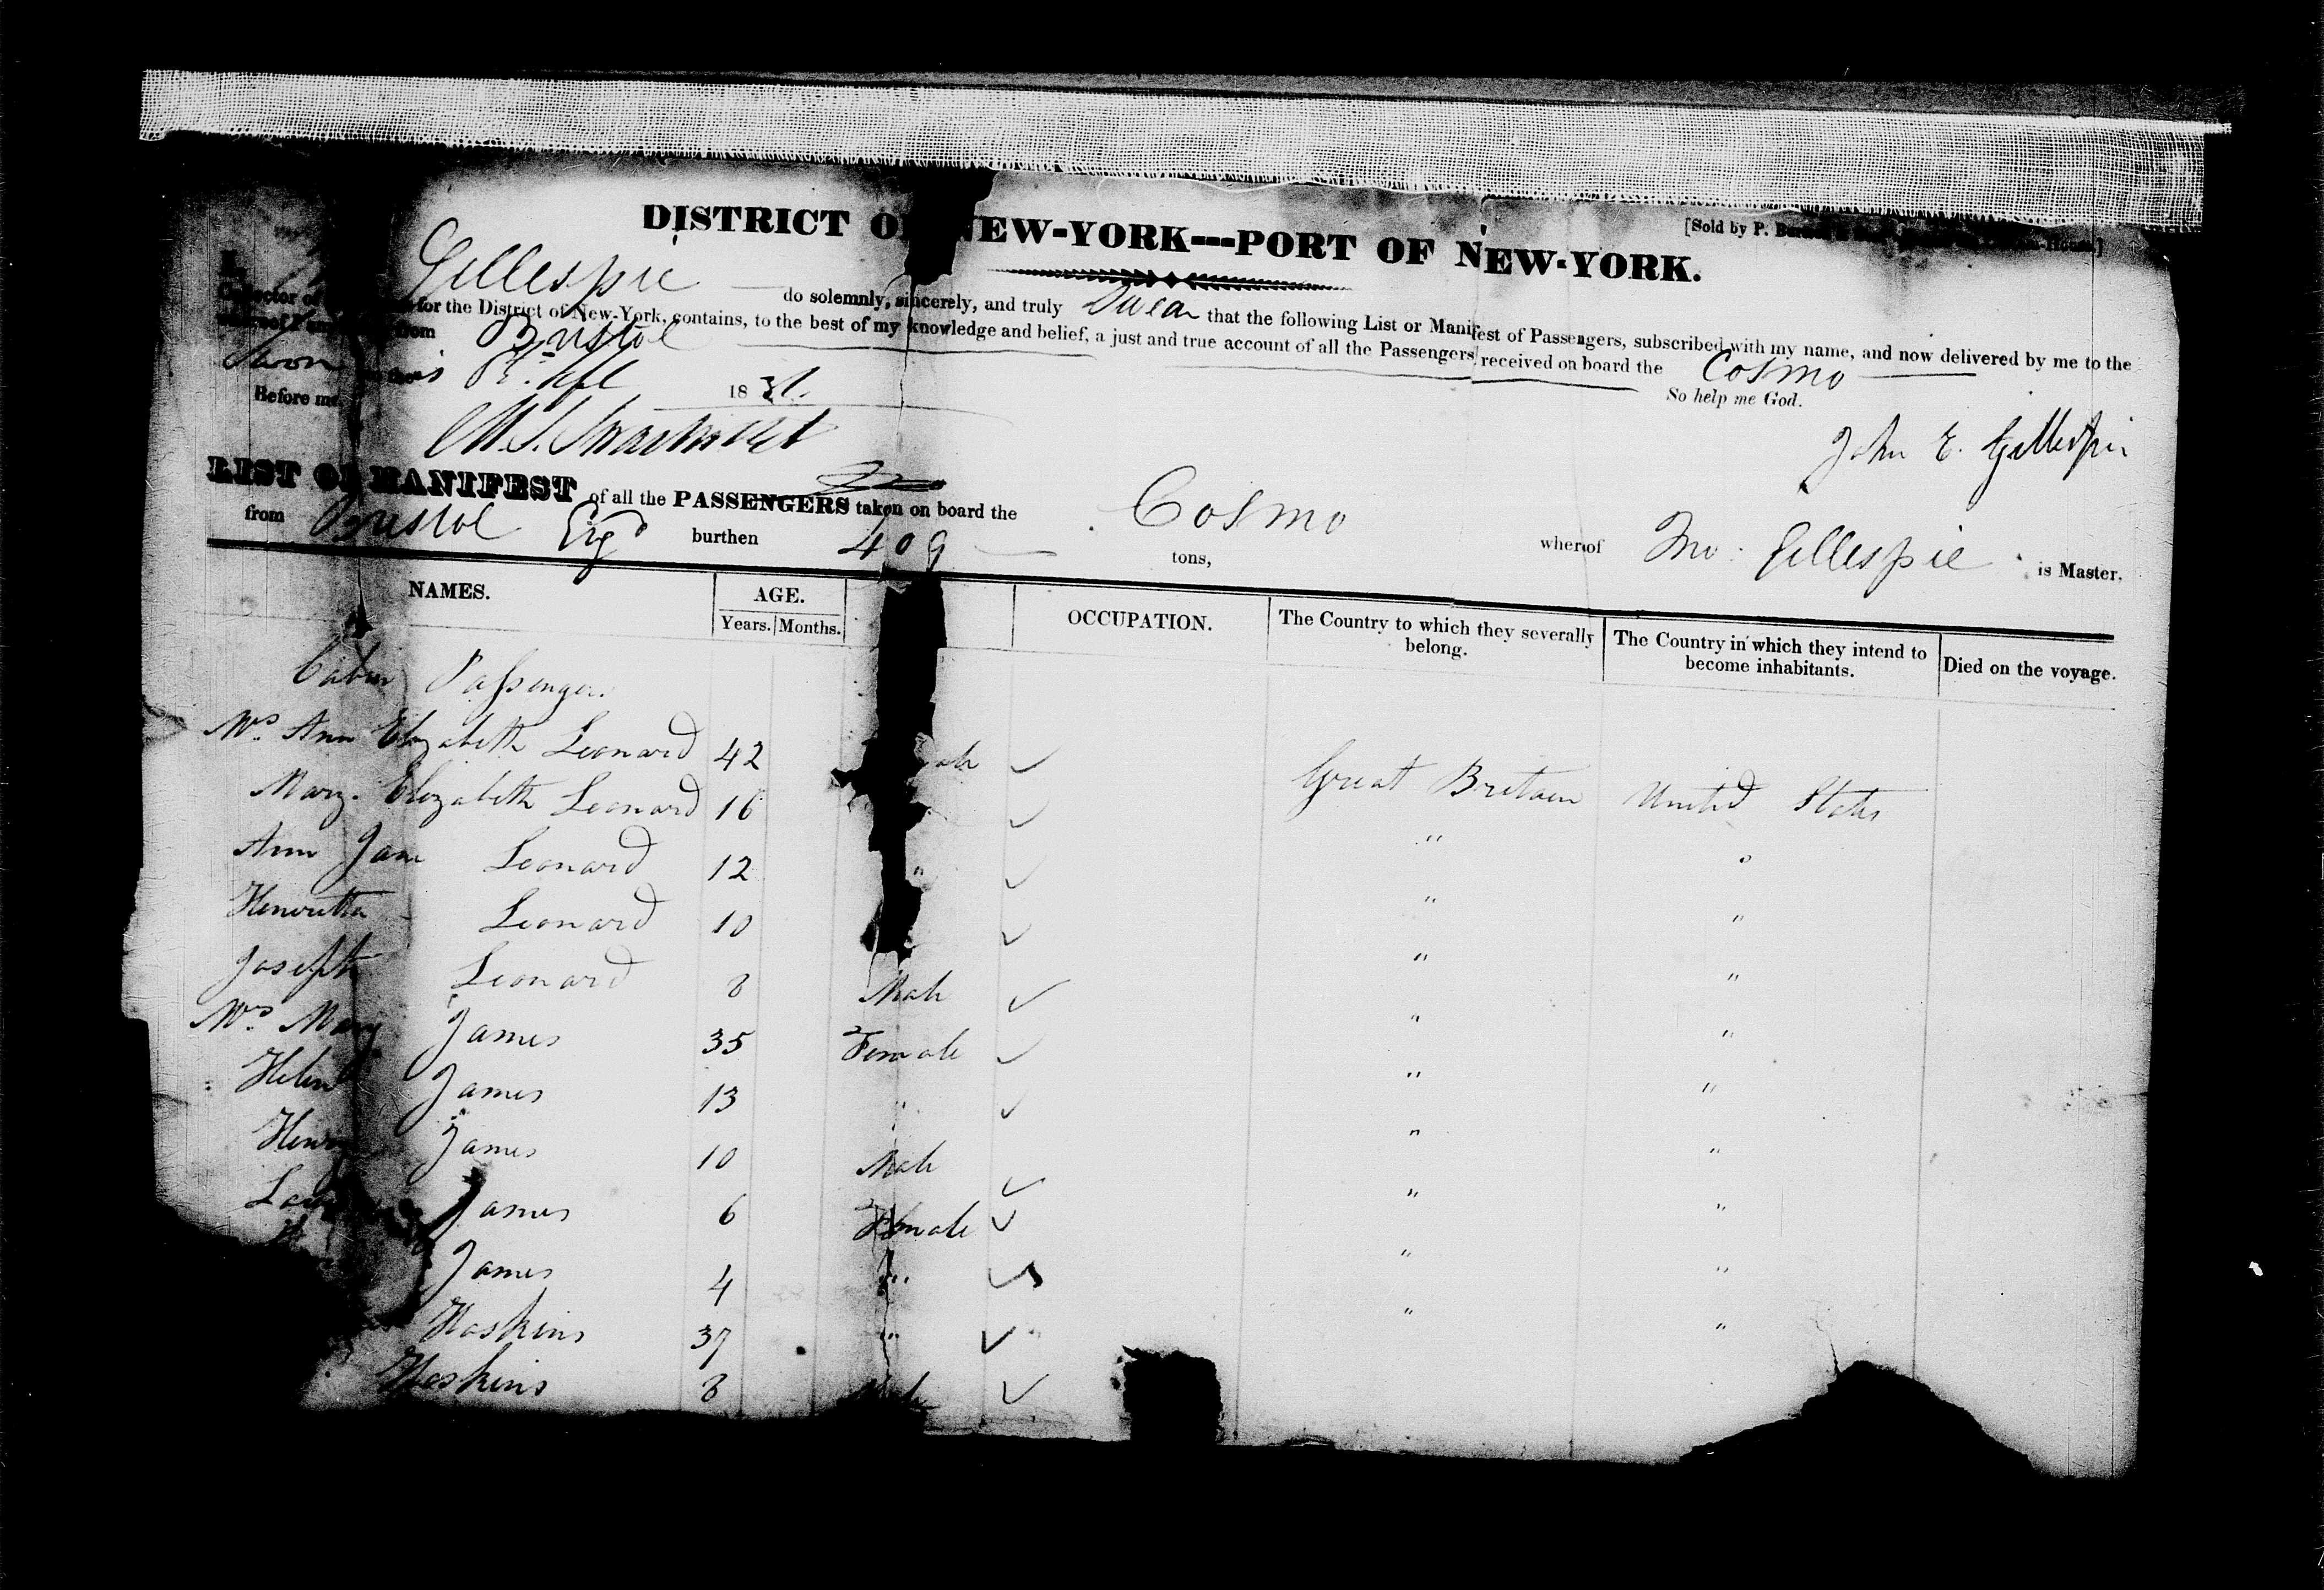 DISTRICT OF NEW-YORK---PORT OF NEW-YORK.
[Sold by P.
Gillespie do solemnly, sincerely, and truly Swear that the following List or Manifest of Passengers, subscribed with my name, and now delivered by me to the
Collector of for the District of New-York, contains, to the best of my knowledge and belief, a just and true account of all the Passengers received on board the Cosmo
from Bristol
So help me God.
Sworn 18
Before me
John E. Gillespie
LIST OR MANIFEST of all the PASSENGERS taken on board the Cosmo whereof Jno. Gillespie is Master.
from Bristol burthen 409 tons,
NAMES. AGE. OCCUPATION. The Country to which they severally belong. The Country in which they intend to become inhabitants. Died on the voyage.
Years. Months.
Cabin Passengers
Mrs Ann Elizabeth Leonard 42 Great Britain United States
Mary Elizabeth Leonard 16 " "
Ann Jane Leonard 12 " " "
Henrietta Leonard 10 " "
Joseph Leonard 8 Male " "
Mrs Mary James 35 Female " "
Helen James 13 " " "
Henry James 10 Male " "
James 6 Female " "
James 4 " " "
Hoskins 37 "
Hoskins 8